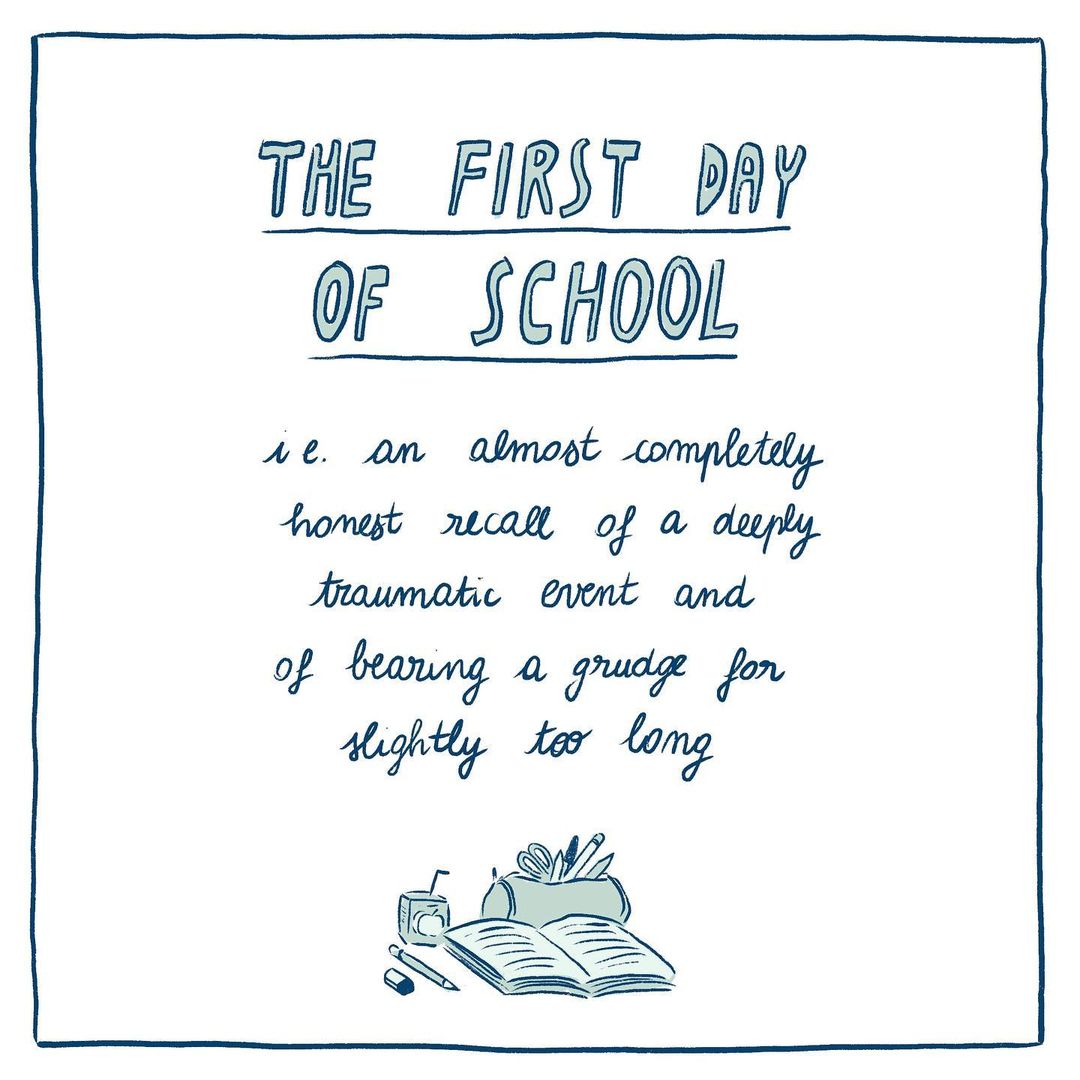 THE FIRST DAY
OF SCHOOL
i e. an almost completely
honest recall of a deeply
traumatic event and
of bearing a grudge for
slightly too long